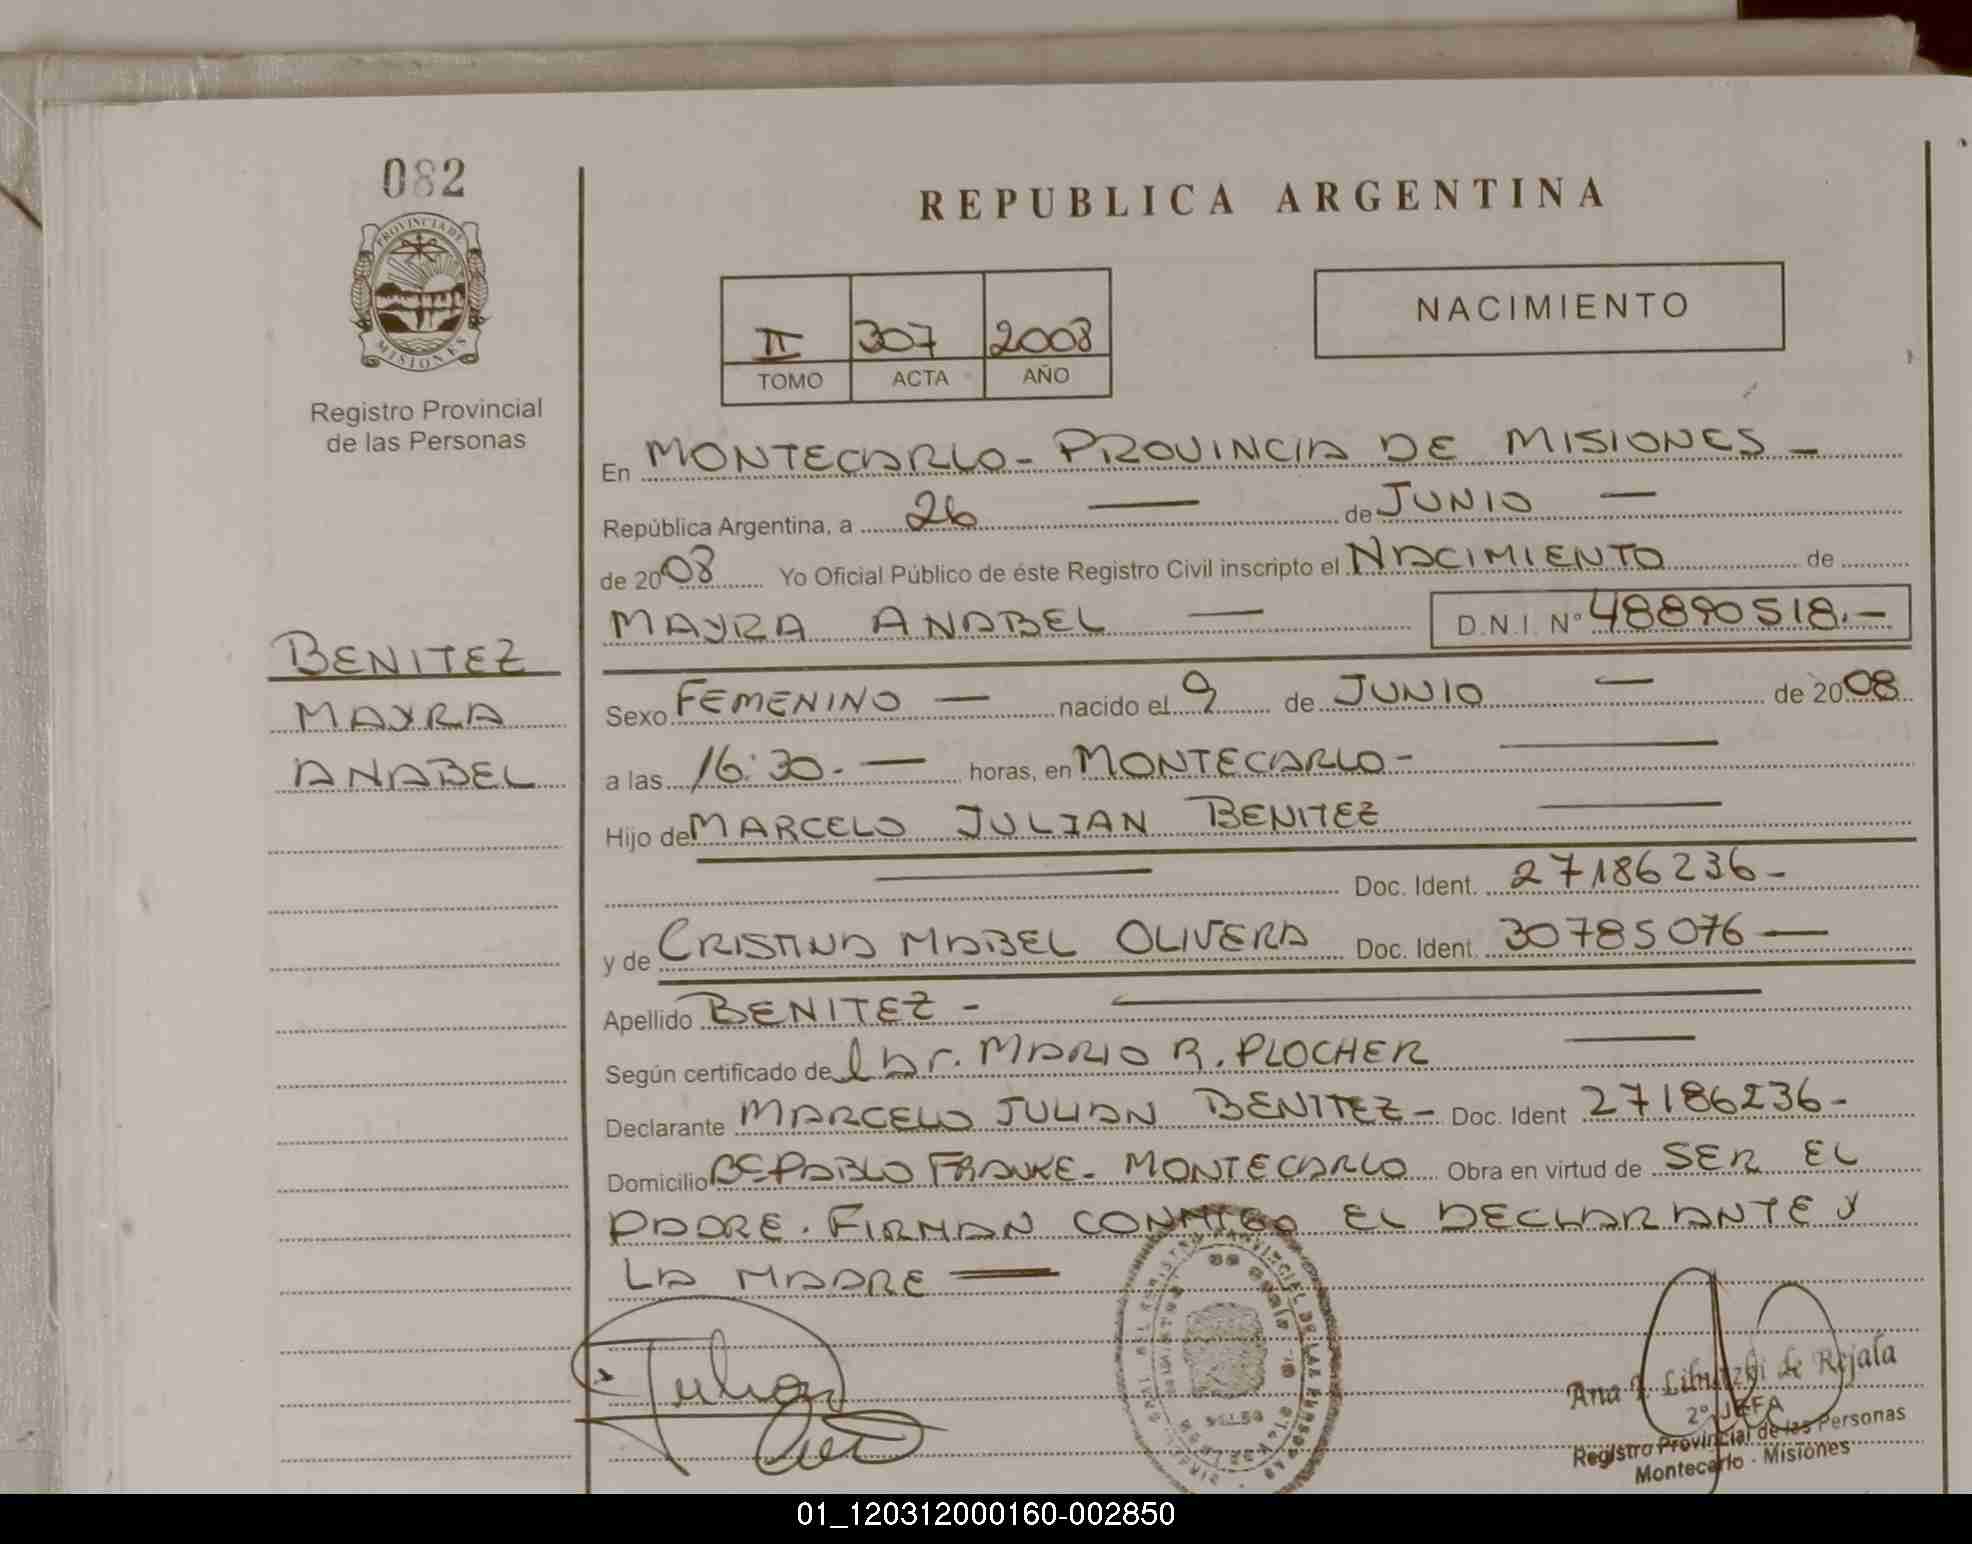 082
PROVINCIA DE
MISIONES
Registro Provincial
de las Personas
BENITEZ
MAYRA
ANABEL
REPUBLICA ARGENTINA
II 307 2008
TOMO ACTA AÑO
NACIMIENTO
En MONTECARLO - PROVINCIA DE MISIONES -
República Argentina, a 26 — de JUNIO —
de 2008 Yo Oficial Público de éste Registro Civil inscripto el NACIMIENTO de
MAYRA ANABEL — D.N.I. Nº 48890518.-
Sexo FEMENINO — nacido el 9 de JUNIO — de 2008
a las 16:30.- — horas, en MONTECARLO -
Hijo de MARCELO JULIAN BENITEZ —
— Doc. Ident. 27186236-
y de CRISTINA MABEL OLIVERA Doc. Ident. 30785076 —
Apellido BENITEZ -
Según certificado de l Dr. MARIO R. PLOCHER —
Declarante MARCELO JULIAN BENITEZ - Doc. Ident 27186236-
Domicilio Bº PABLO FRANKE - MONTECARLO Obra en virtud de SER EL
PADRE. FIRMAN CONMIGO EL DECLARANTE Y
LA MADRE —
Julian
Ana de Rejala
2º JEFA
Registro Provincial de las Personas
Montecarlo - Misiones
01_120312000160-002850